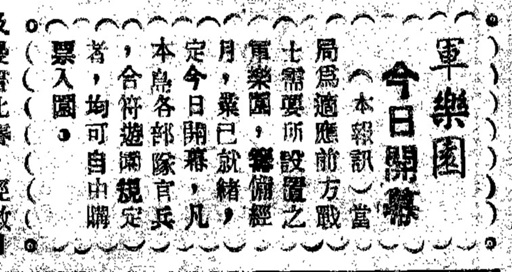 軍樂園
今日開幕
（本報訊）當
局爲適應前方戰
士需要所設置之
軍樂園，籌備經
月，業已就緒，
定今日開幕，凡
本島各部隊官兵
，合符遊園規定
者，均可自由購
票入園。